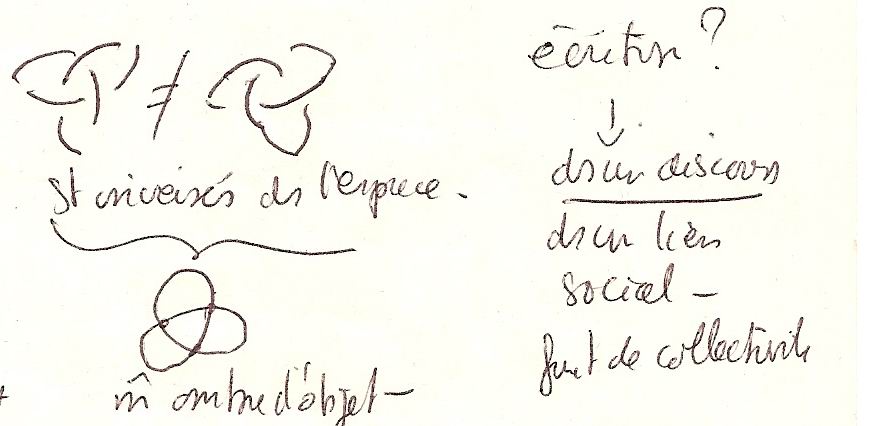 ≠
st inversés ds l'espace -
m̂ ombre d'objet -
écriture ?
↓
ds un discours
ds un lien
social -
de collectivité